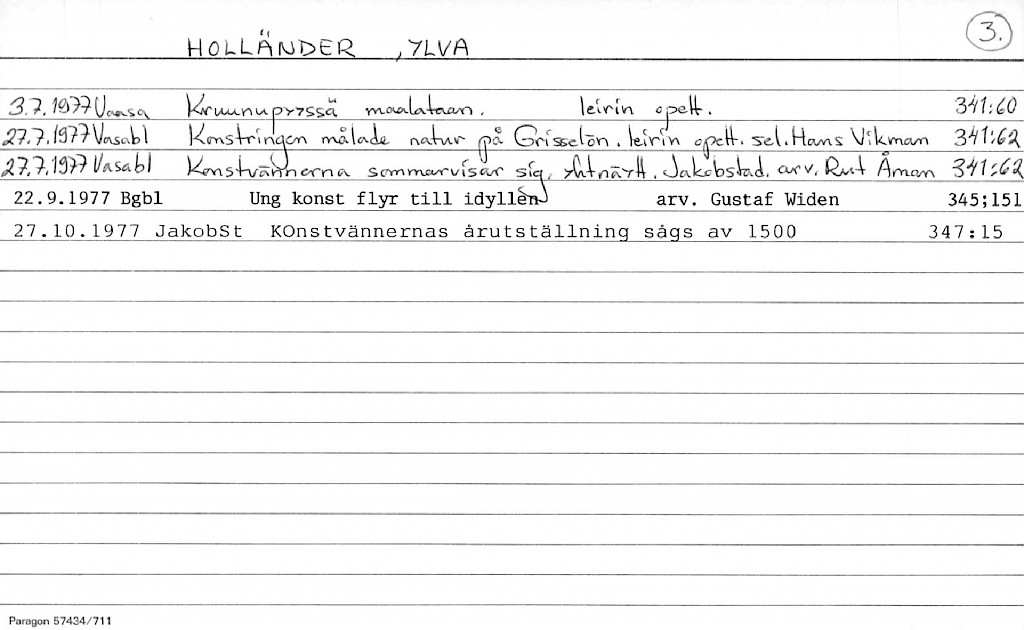 3.
HOLLÄNDER , YLVA
3.7.1977 Vaasa Kruunupyyssä maalataan. leirin opett. 341:60
27.7.1977 Vasabl Konstringen målade natur på Grisselön. leirin opett. sel. Hans Vikman 341:62
27.7.1977 Vasabl Konstvännerna sommarvisar sig, yhtnäytt. Jakobstad. arv. Rut Åman 341:62
22.9.1977 Bgbl Ung konst flyr till idyllen arv. Gustaf Widen 345;151
27.10.1977 JakobSt KOnstvännernas årutställning sågs av 1500 347:15
Paragon 57434/711